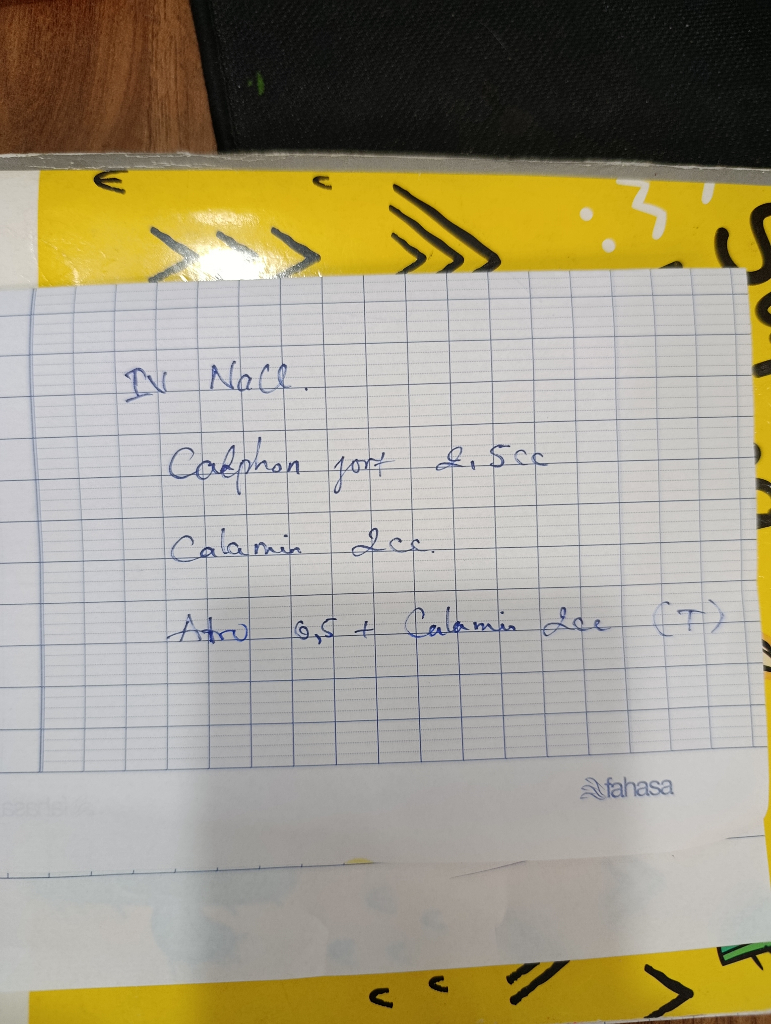 IV NaCl.
Calphon fort 2,5cc
Calamin 2cc.
Atro 0,5 + Calamin 2cc (T)
fahasa